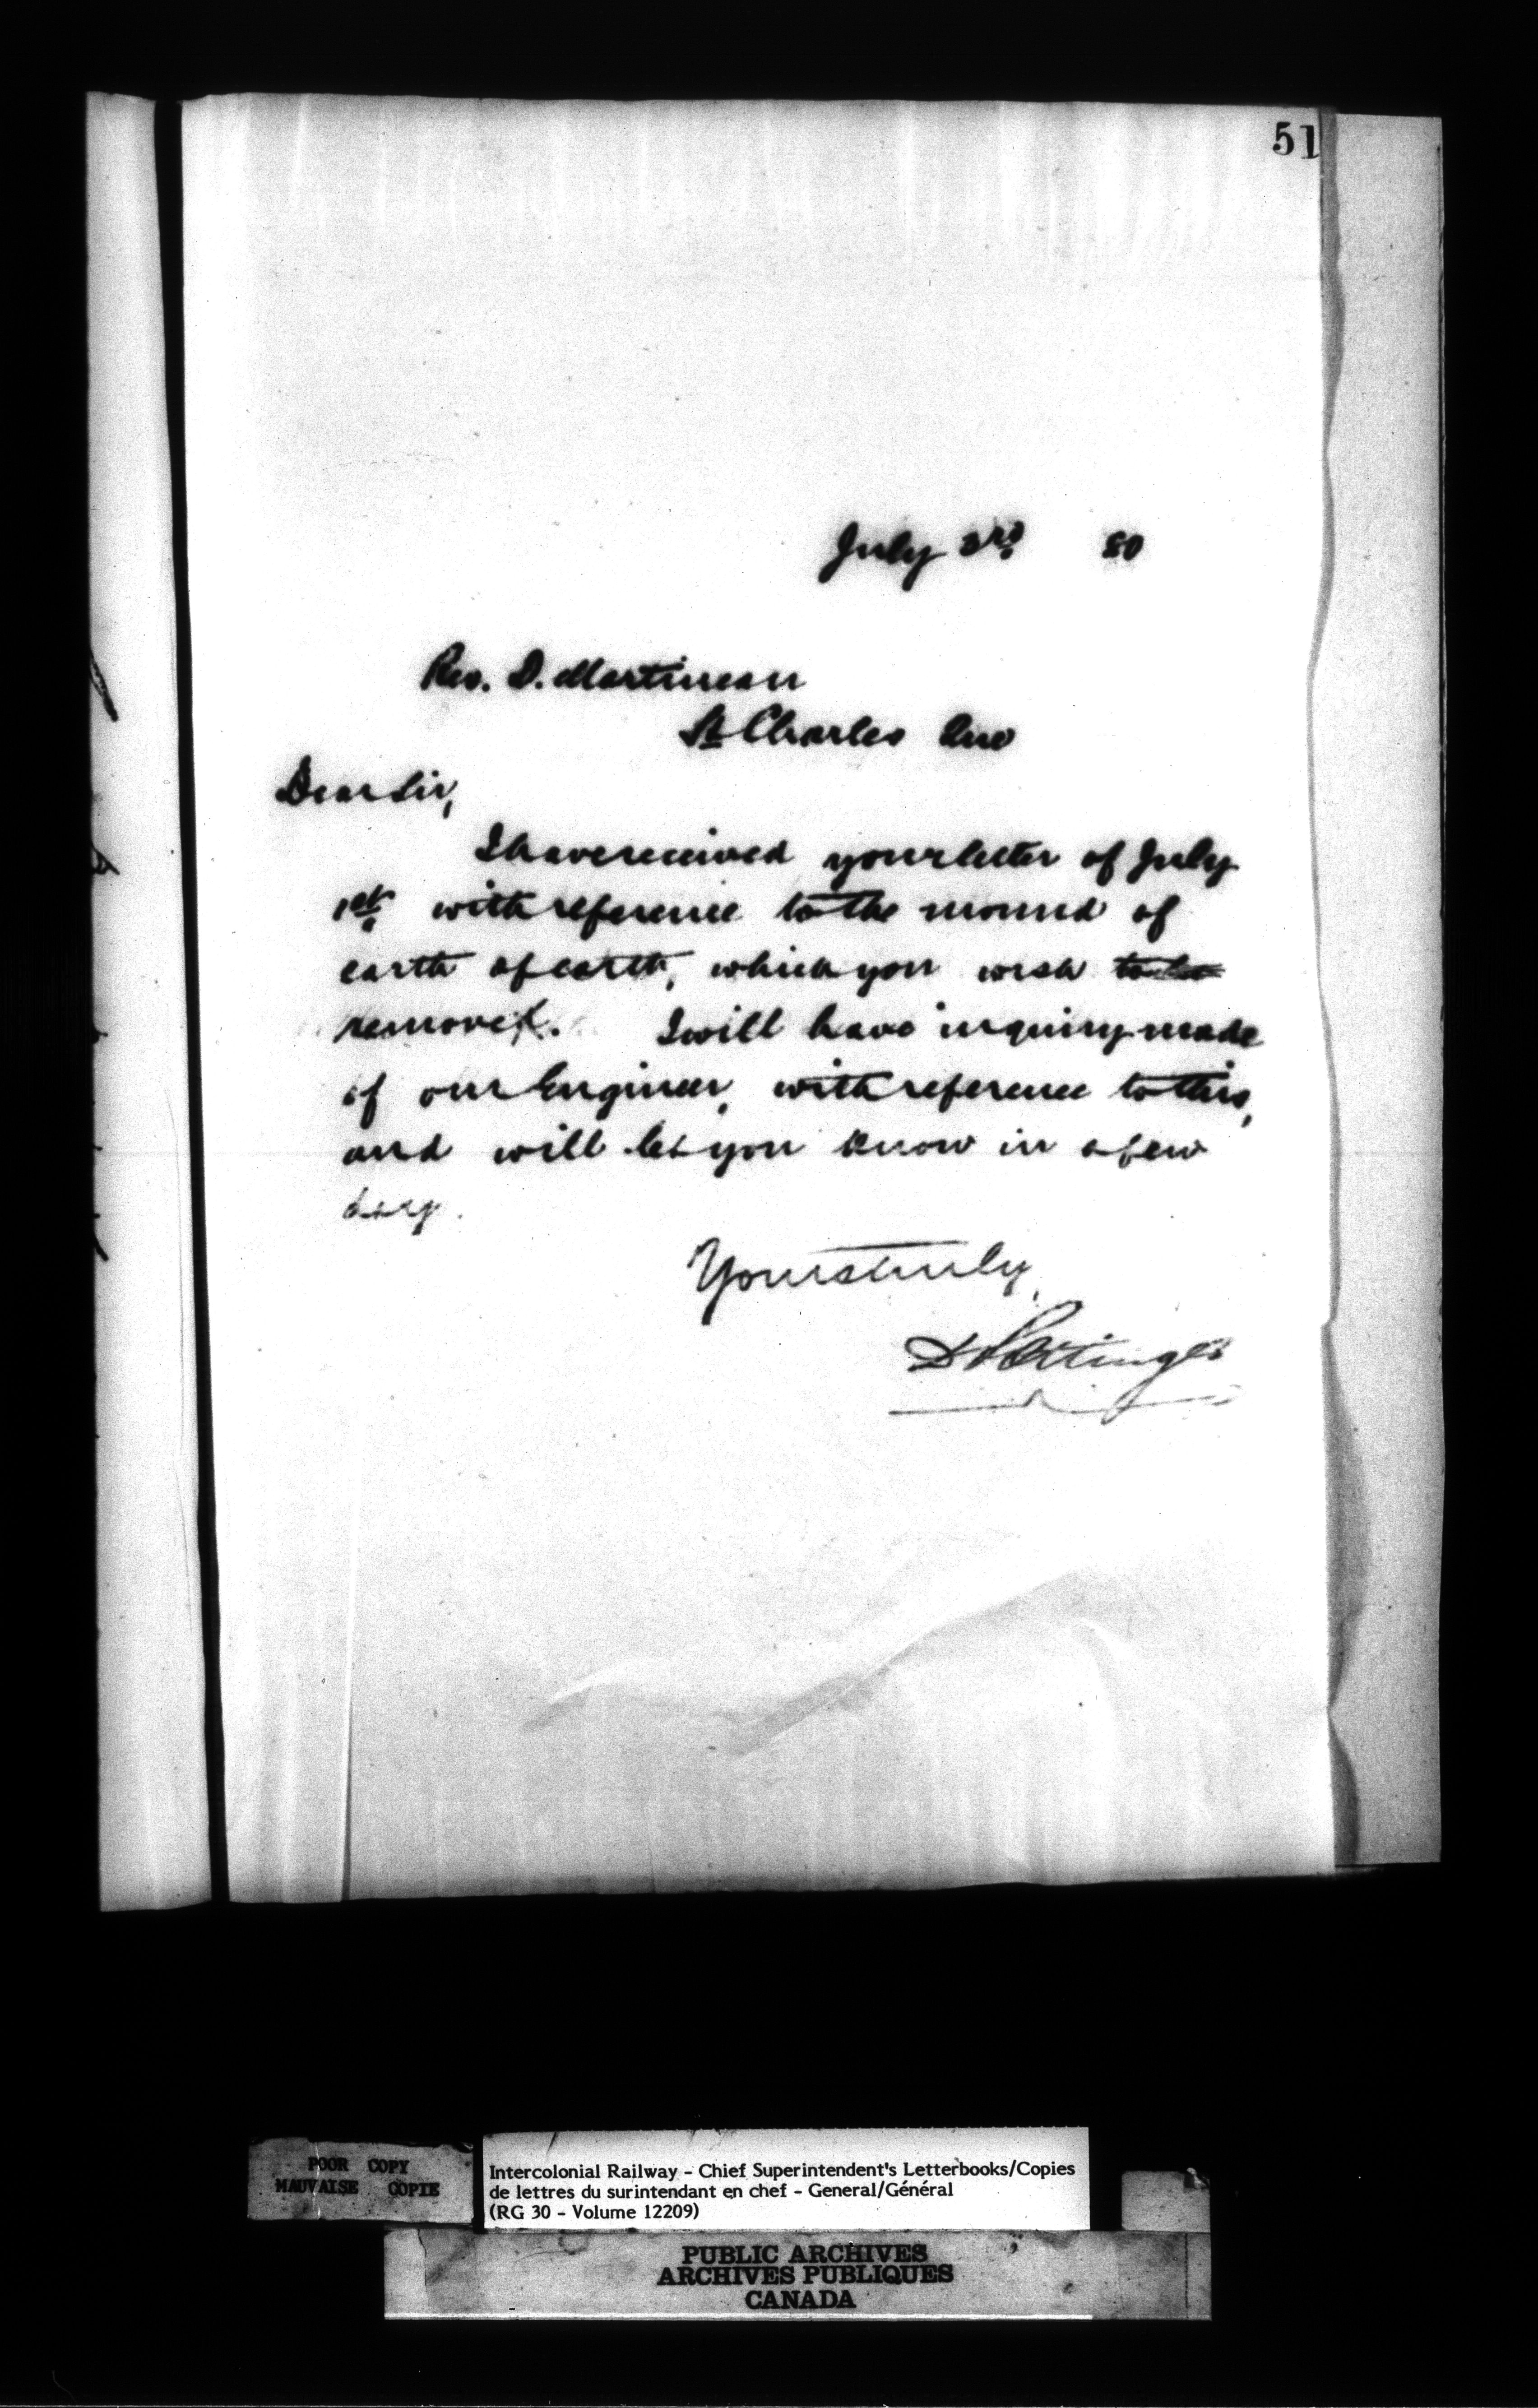 51
July 3rd 80
Rev. D. Martineau
St Charles Que
Dear Sir,
I have received your letter of July
1st with reference to the mound of
earth of earth, which you wish to be
removed. I will have inquiry made
of our Engineer, with reference to this,
and will let you know in a few
days.
Yours truly,
D Pottinger
POOR COPY
MAUVAISE COPIE
Intercolonial Railway - Chief Superintendent's Letterbooks/Copies
de lettres du surintendant en chef - General/Général
(RG 30 - Volume 12209)
PUBLIC ARCHIVES
ARCHIVES PUBLIQUES
CANADA